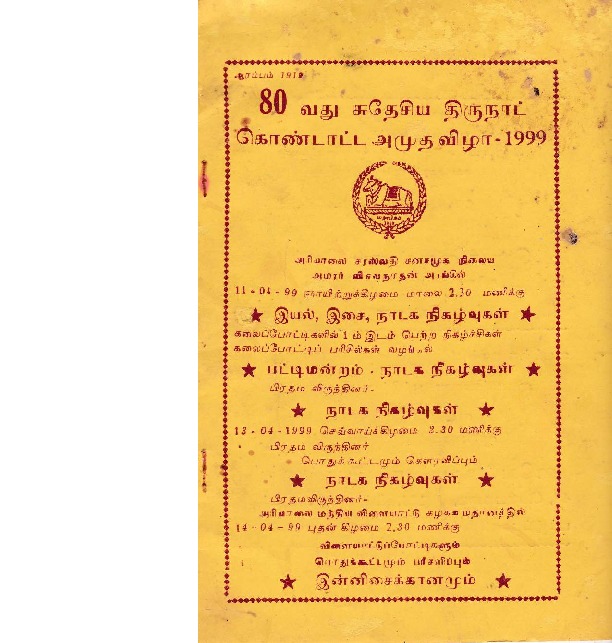 ஆரம்பம் 1919
80 வது சுதேசிய திருநாட்
கொண்டாட்ட அமுதவிழா - 1999
அரியாலை சரஸ்வதி சனசமூக நிலைய
அமரர் விசுவநாதன் அரங்கில்
11 - 04 - 99 ஞாயிற்றுக்கிழமை மாலை 2.30 மணிக்கு
★ இயல், இசை, நாடக நிகழ்வுகள் ★
கலைப்போட்டிகளில் 1 ம் இடம் பெற்ற நிகழ்ச்சிகள்
கலைப்போட்டிப் பரிசில்கள் வழங்கல்
★ பட்டிமன்றம் - நாடக நிகழ்வுகள் ★
பிரதம விருந்தினர் -
★ நாடக நிகழ்வுகள் ★
13 - 04 - 1999 செவ்வாய்க்கிழமை 2.30 மணிக்கு
பிரதம விருந்தினர்
பொதுக்கூட்டமும் கௌரவிப்பும்
★ நாடக நிகழ்வுகள் ★
பிரதமவிருந்தினர் -
அரியாலை மத்திய விளையாட்டு கழகக மதானத்தில்
14 - 04 - 99 புதன் கிழமை 2.30 மணிக்கு
விளையாட்டுப்போட்டிகளும்
பொதுக்கூட்டமும் பரிசளிப்பும்
★ இன்னிசைக்கானமும் ★